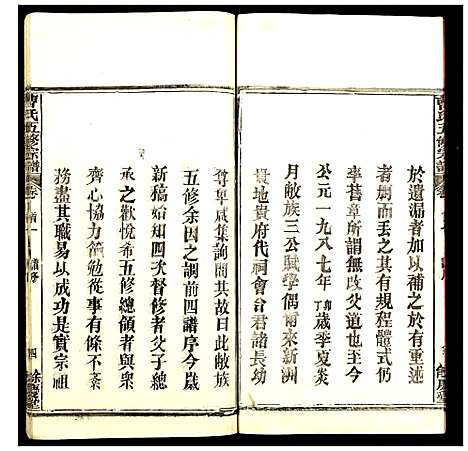 於遺漏者加以補之於有重述
者刪而去之其有規程體式仍
率舊章所謂無改父道也至今
公元一九八七年丁卯歲季夏炎
月敝族三公賦學偶爾來新洲
長地貴府代祠會台君諸長幼
尊卑咸集詢問其故曰此敝族
五修余因之調前四譜序今歲
新稿始知四次督修者父子總
承之歡悅希五修總領者與同
齊心協力黽勉從事有條不紊
務盡其職易以成功是實宗祖
曹氏五修宗譜 卷首一 譜序 四 餘慶堂